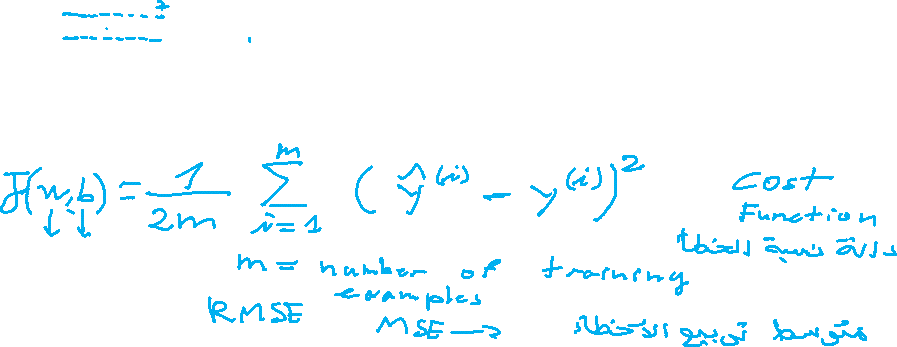 J(w,b) = 1/2m Σ i=1 m (ŷ^(i) - y^(i))^2
Cost
Function
دالة نسبة الخطأ
m = number of training
examples
RMSE
MSE → متوسط تربيع الاخطاء